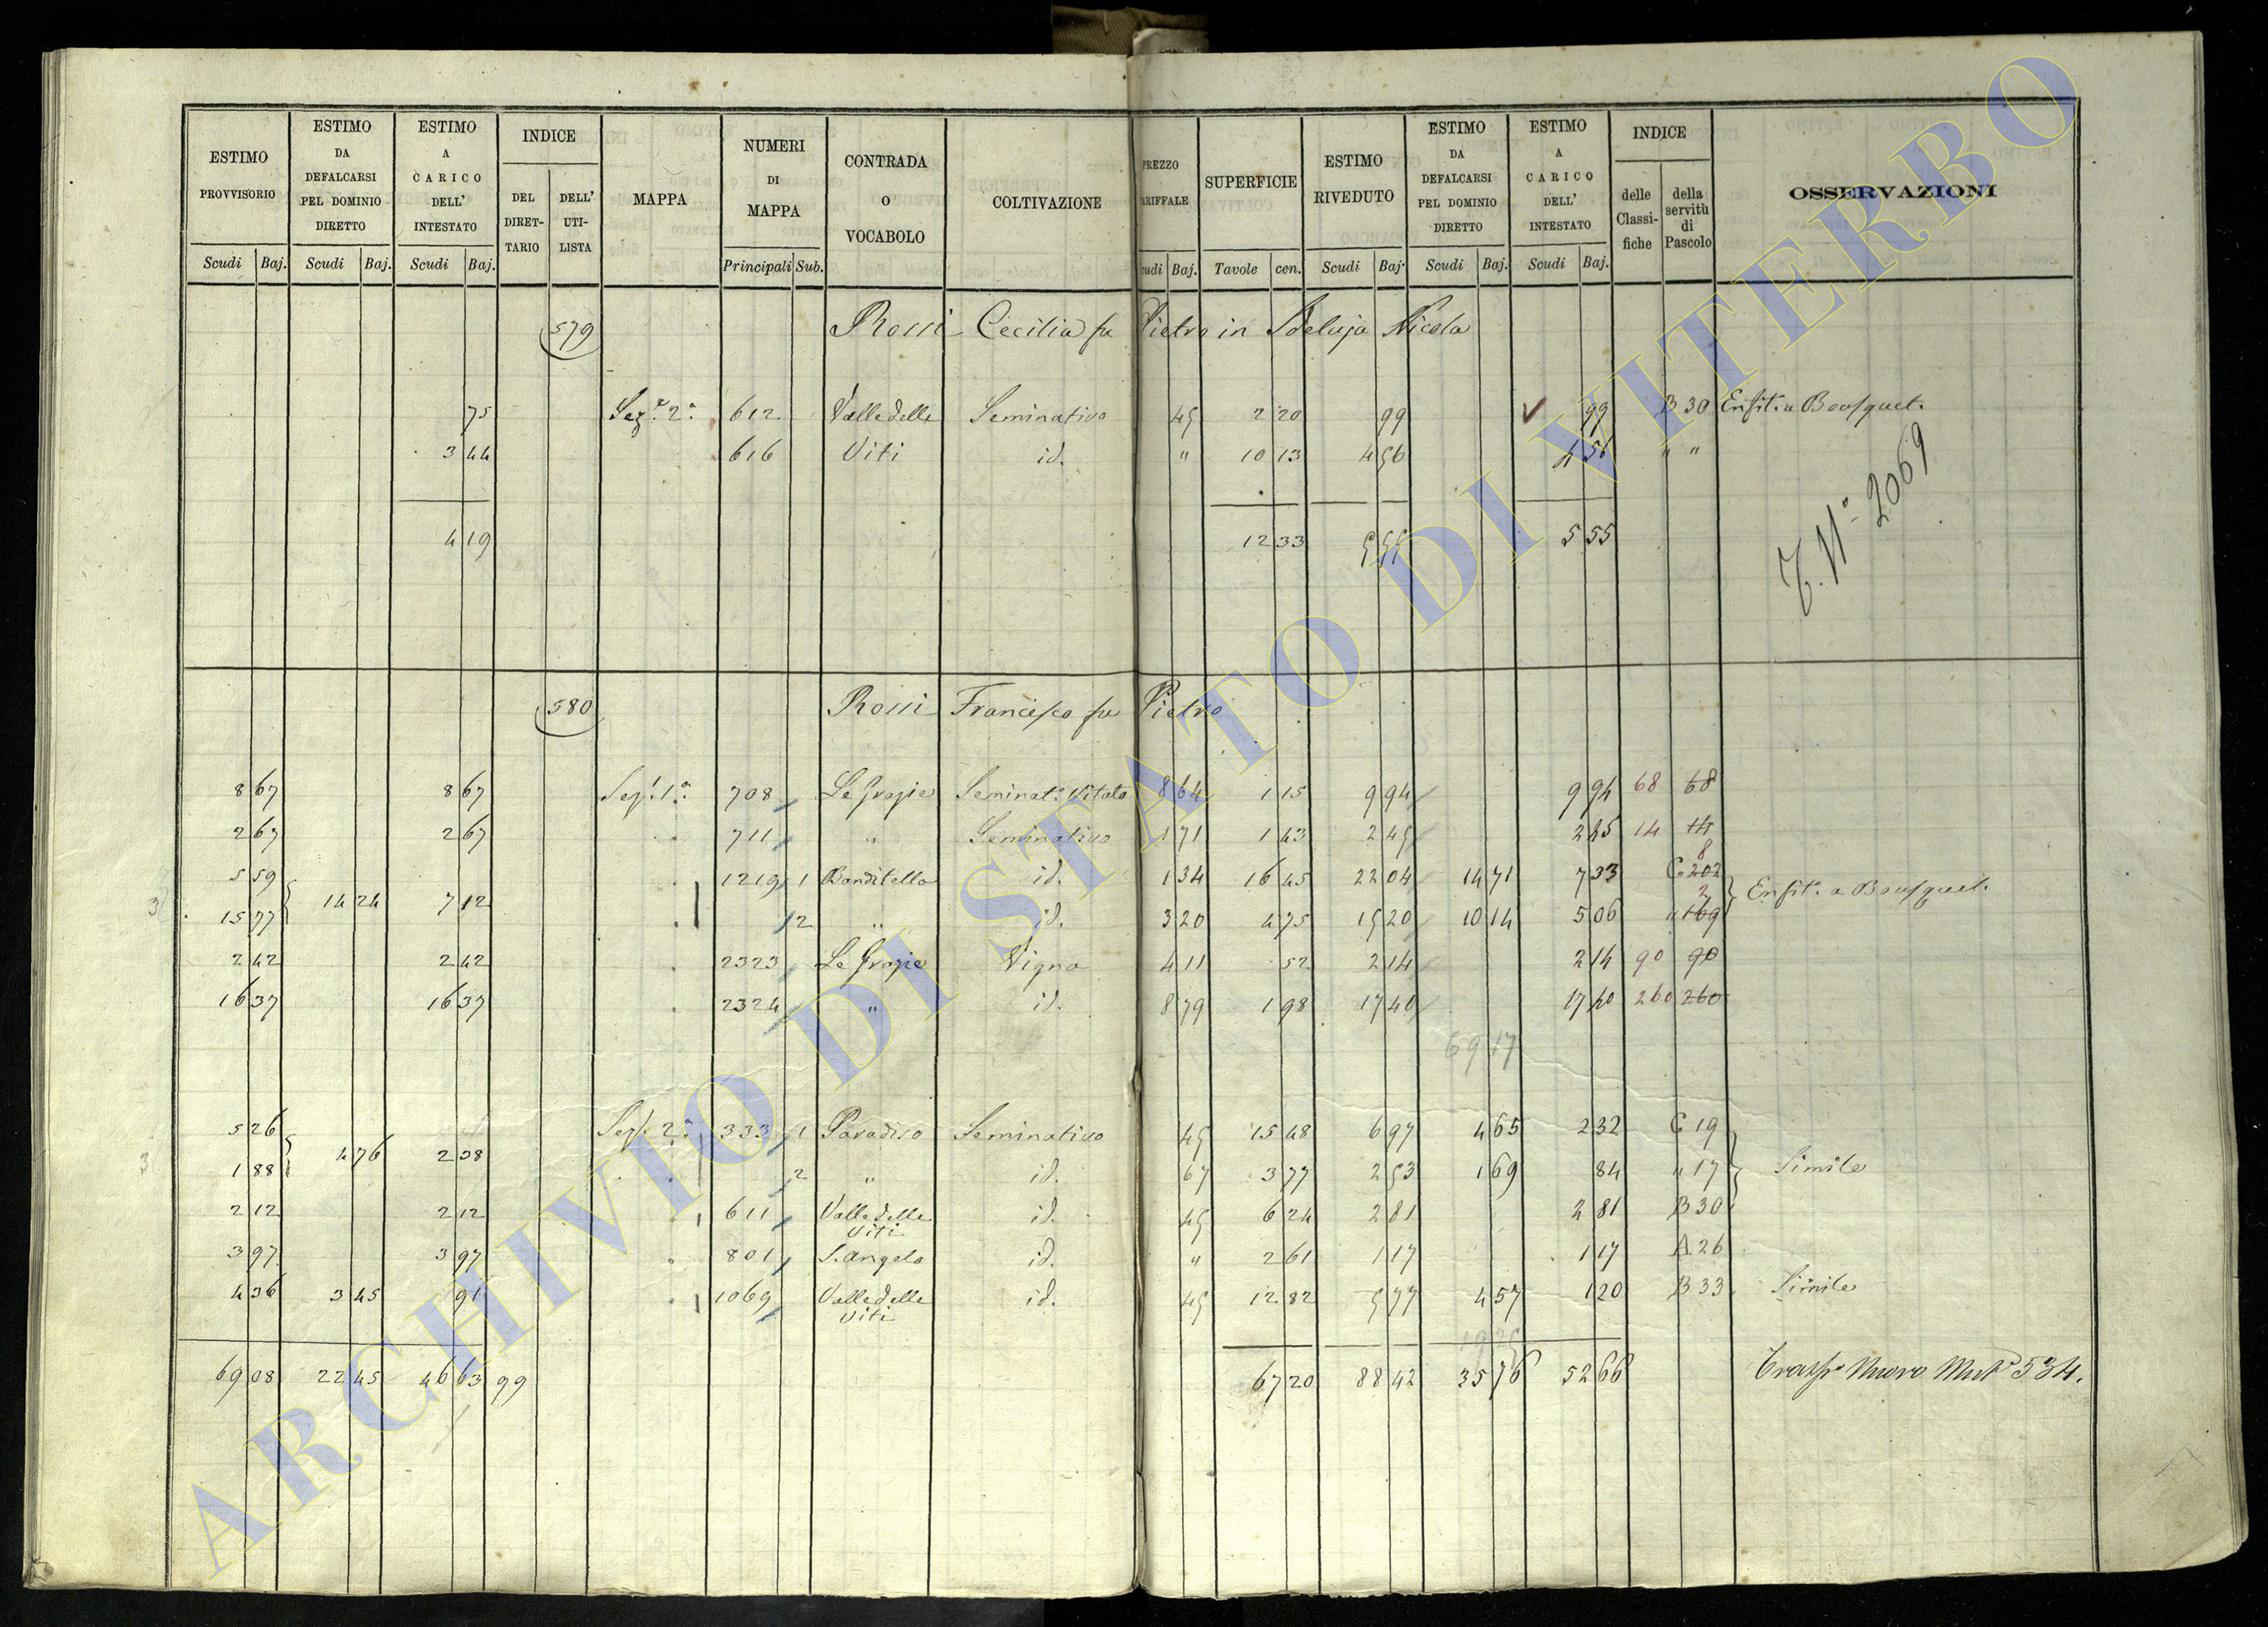 ESTIMO PROVVISORIO Scudi Baj. ESTIMO DA DEFALCARSI PEL DOMINIO DIRETTO Scudi Baj. ESTIMO A CARICO DELL' INTESTATO Scudi Baj. INDICE DEL DIRET-TARIO DELL' UTI-LISTA MAPPA NUMERI DI MAPPA Principali Sub. CONTRADA O VOCABOLO COLTIVAZIONE PREZZO ARIFFALE udi Baj. SUPERFICIE Tavole cen. ESTIMO RIVEDUTO Scudi Baj. ESTIMO DA DEFALCARSI PEL DOMINIO DIRETTO Scudi Baj. ESTIMO A CARICO DELL' INTESTATO Scudi Baj. INDICE delle Classi-fiche della servitù di Pascolo OSSERVAZIONI
579 Rossi Cecilia fu Pietro in Nicola
75 Sez.e 2a 612 Valle delle Seminativo 45 2 20 99 99 B 30 Enfit. a Bousquet.
3 44 616 Viti id. " 10 13 4 56 4 56 " "
4 19 12 33 5 55 5 55
T. N° 2069
580 Rossi Francesco fu Pietro
8 67 8 67 Sez. 1a 708 Le Grazie Seminat. Vitato 8 64 1 15 9 94 9 94 68 68
2 67 2 67 711 " Seminativo 1 71 1 43 2 45 2 45 14 14
5 59 1219 1 Banditella id. 1 34 16 45 22 04 14 71 7 33 C 202 8
3 14 24 7 12 Enfit. a Bousquet.
15 77 2 " id. 3 20 4 75 15 20 10 14 5 06 " 169 2
2 42 2 42 2323 Le Grazie Vigna 4 11 52 2 14 2 14 90 90
16 37 16 37 2324 " id. 8 79 1 98 17 40 17 40 260 260
69 17
5 26 Sez. 2a 333 1 Paradiso Seminativo 45 15 48 6 97 4 65 2 32 C 19
3 4 76 2 38
1 88 2 " id. 67 3 77 2 53 1 69 84 " 17 Simile
2 12 2 12 611 Valle delle Viti id. 45 6 24 2 81 2 81 B 30
3 97 3 97 801 S. Angelo id. " 2 61 1 17 1 17 A 26
4 36 3 45 91 1069 Valle delle Viti id. 45 12 82 5 77 4 57 1 20 B 33 Simile
69 08 22 45 46 63 99 67 20 88 42 35 76 52 66 Nuovo 534.
ARCHIVIO DI STATO DI VITERBO